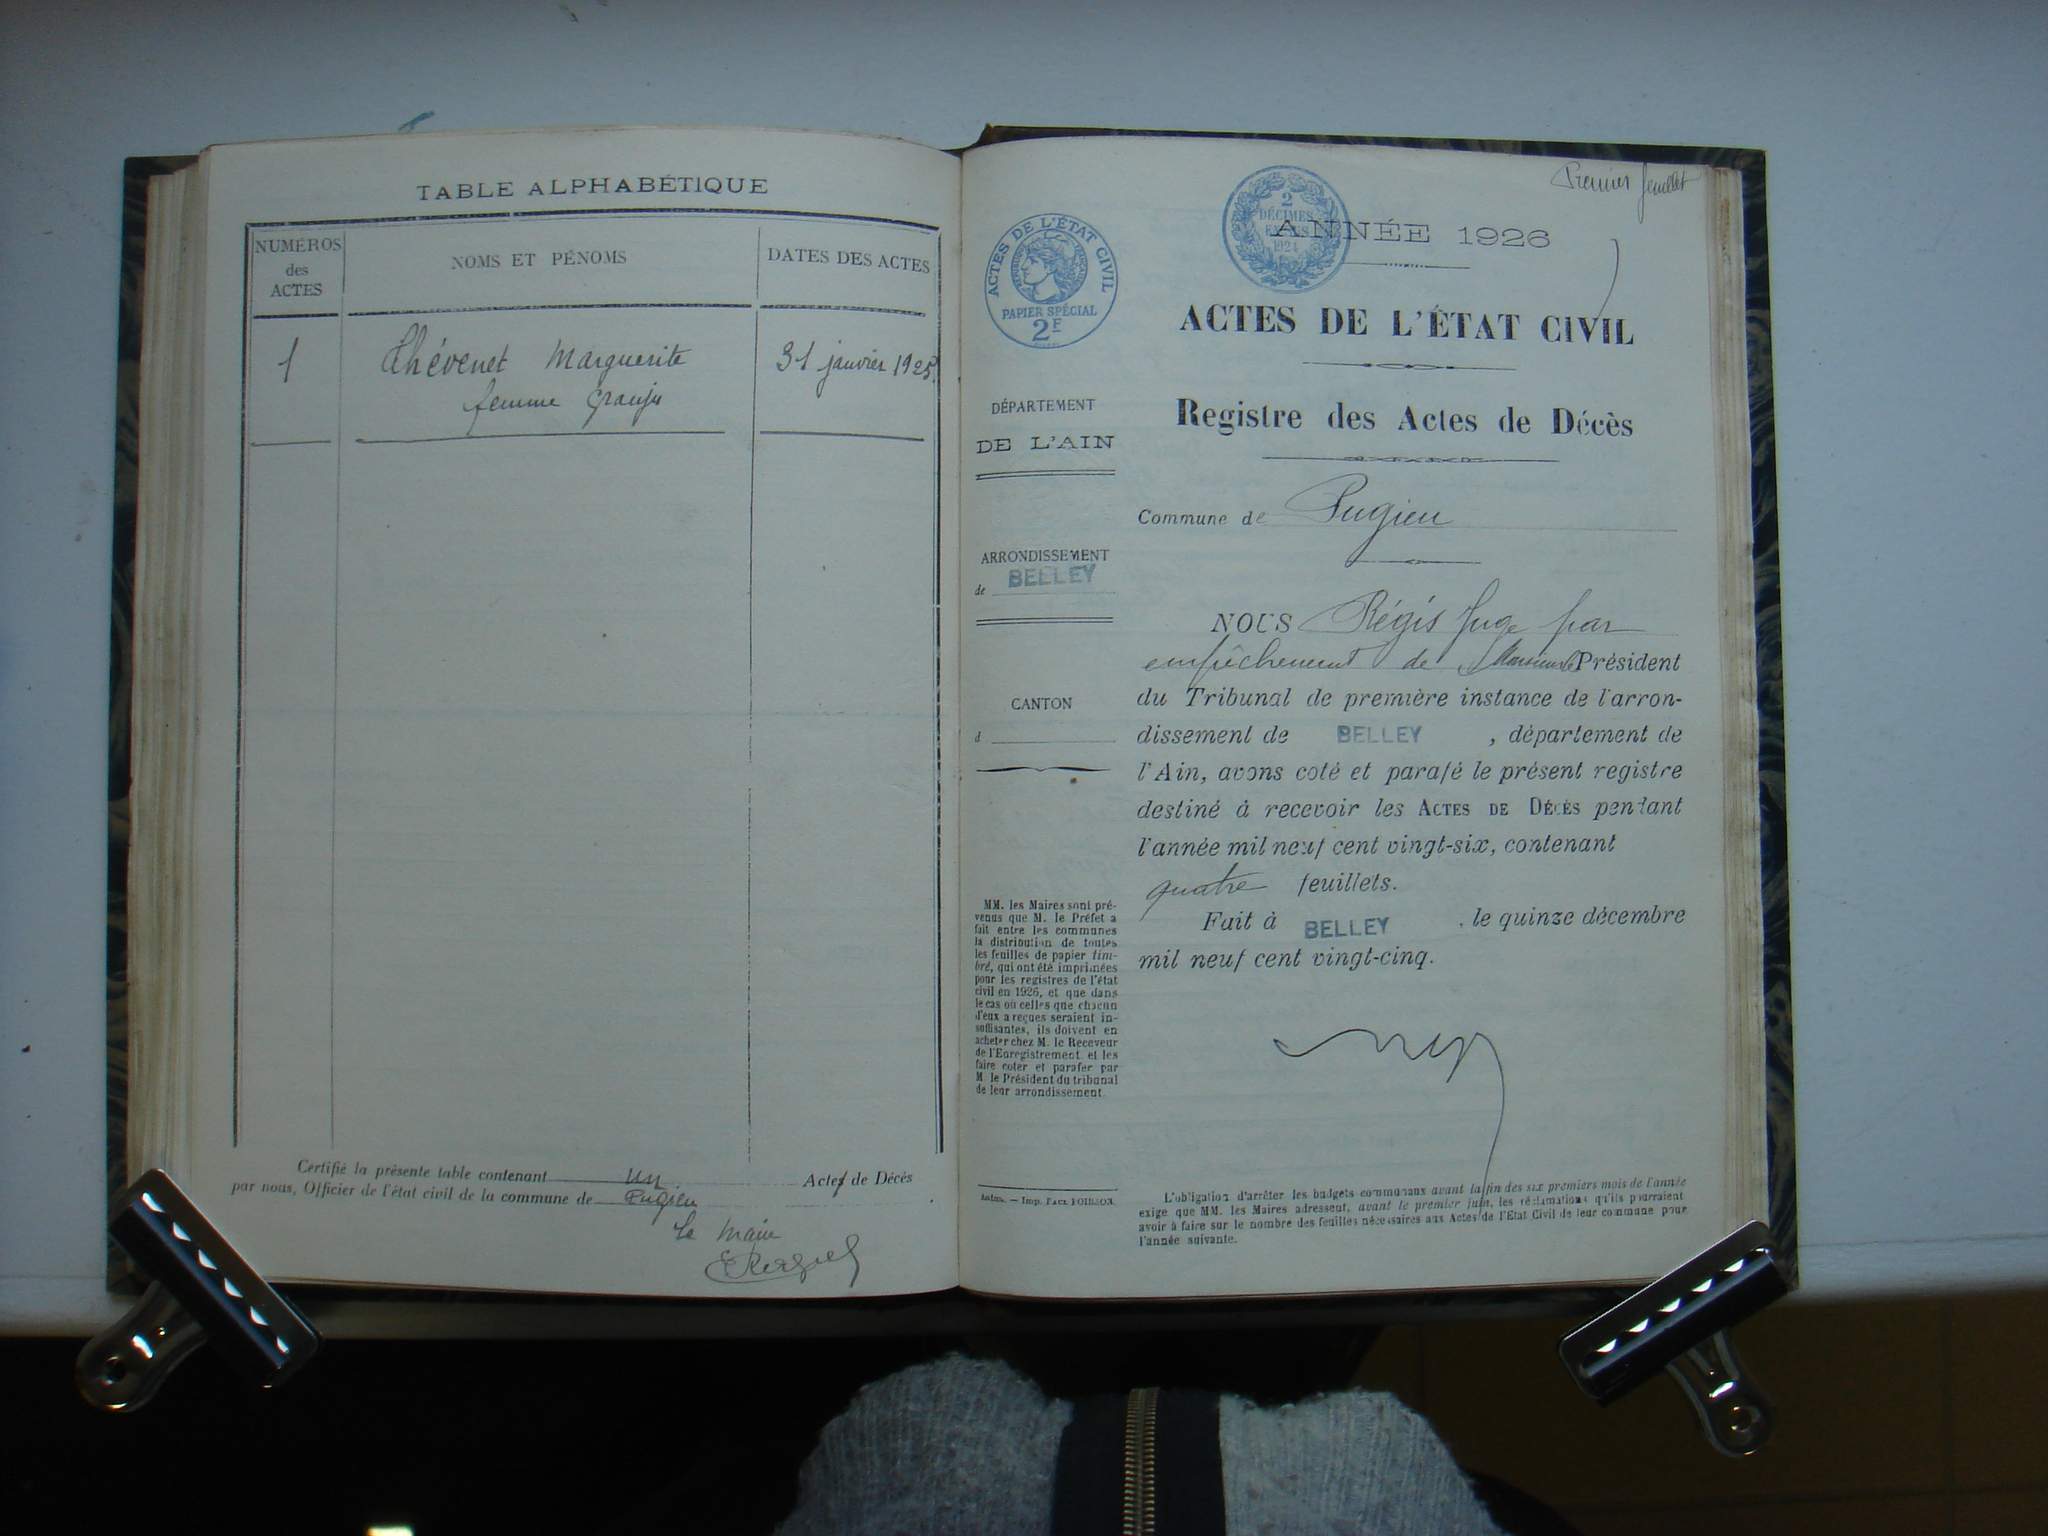 TABLE ALPHABÉTIQUE
NUMÉROS
des
ACTES
NOMS ET PÉNOMS
DATES DES ACTES
1
Thévenet Marguerite
31 janvier 1925
femme
Certifié la présente table contenant un Actes de Décès
par nous, Officier de l'état civil de la commune de Pugieu
Le Maire
Premier feuillet
ACTES DE L'ÉTAT CIVIL
PAPIER SPÉCIAL
2F
2
DÉCIMES
EN SUS
1924
ANNÉE 1926
ACTES DE L'ÉTAT CIVIL
Registre des Actes de Décès
DÉPARTEMENT
DE L'AIN
ARRONDISSEMENT
de BELLEY
CANTON
d
MM. les Maires sont pré-
venus que M. le Préfet a
fait entre les communes
la distribution de toutes
les feuilles de papier tim-
bré, qui ont été imprimées
pour les registres de l'état
civil en 1926, et que dans
le cas où celles que chacun
d'eux a reçues seraient in-
suffisantes, ils doivent en
acheter chez M. le Receveur
de l'Enregistrement et les
faire coter et parafer par
M. le Président du tribunal
de leur arrondissement.
Imp. Paul POISSON.
Commune de Pugieu
NOUS Régis Juge par
empêchement de Monsieur le Président
du Tribunal de première instance de l'arron-
dissement de BELLEY, département de
l'Ain, avons coté et parafé le présent registre
destiné à recevoir les ACTES DE DÉCÈS pendant
l'année mil neuf cent vingt-six, contenant
quatre feuillets.
Fait à BELLEY, le quinze décembre
mil neuf cent vingt-cinq.
L'obligation d'arrêter les budgets communaux avant la fin des six premiers mois de l'année
exige que MM. les Maires adressent, avant le premier juin, les réclamations qu'ils pourraient
avoir à faire sur le nombre des feuilles nécessaires aux Actes de l'Etat Civil de leur commune pour
l'année suivante.